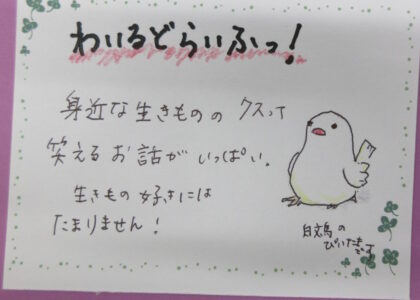 わいるどらいふっ!
身近な生きものの クスって
笑えるお話がいっぱい。
生きもの好きには
たまりません!
白文鳥の
ぴいたま
です